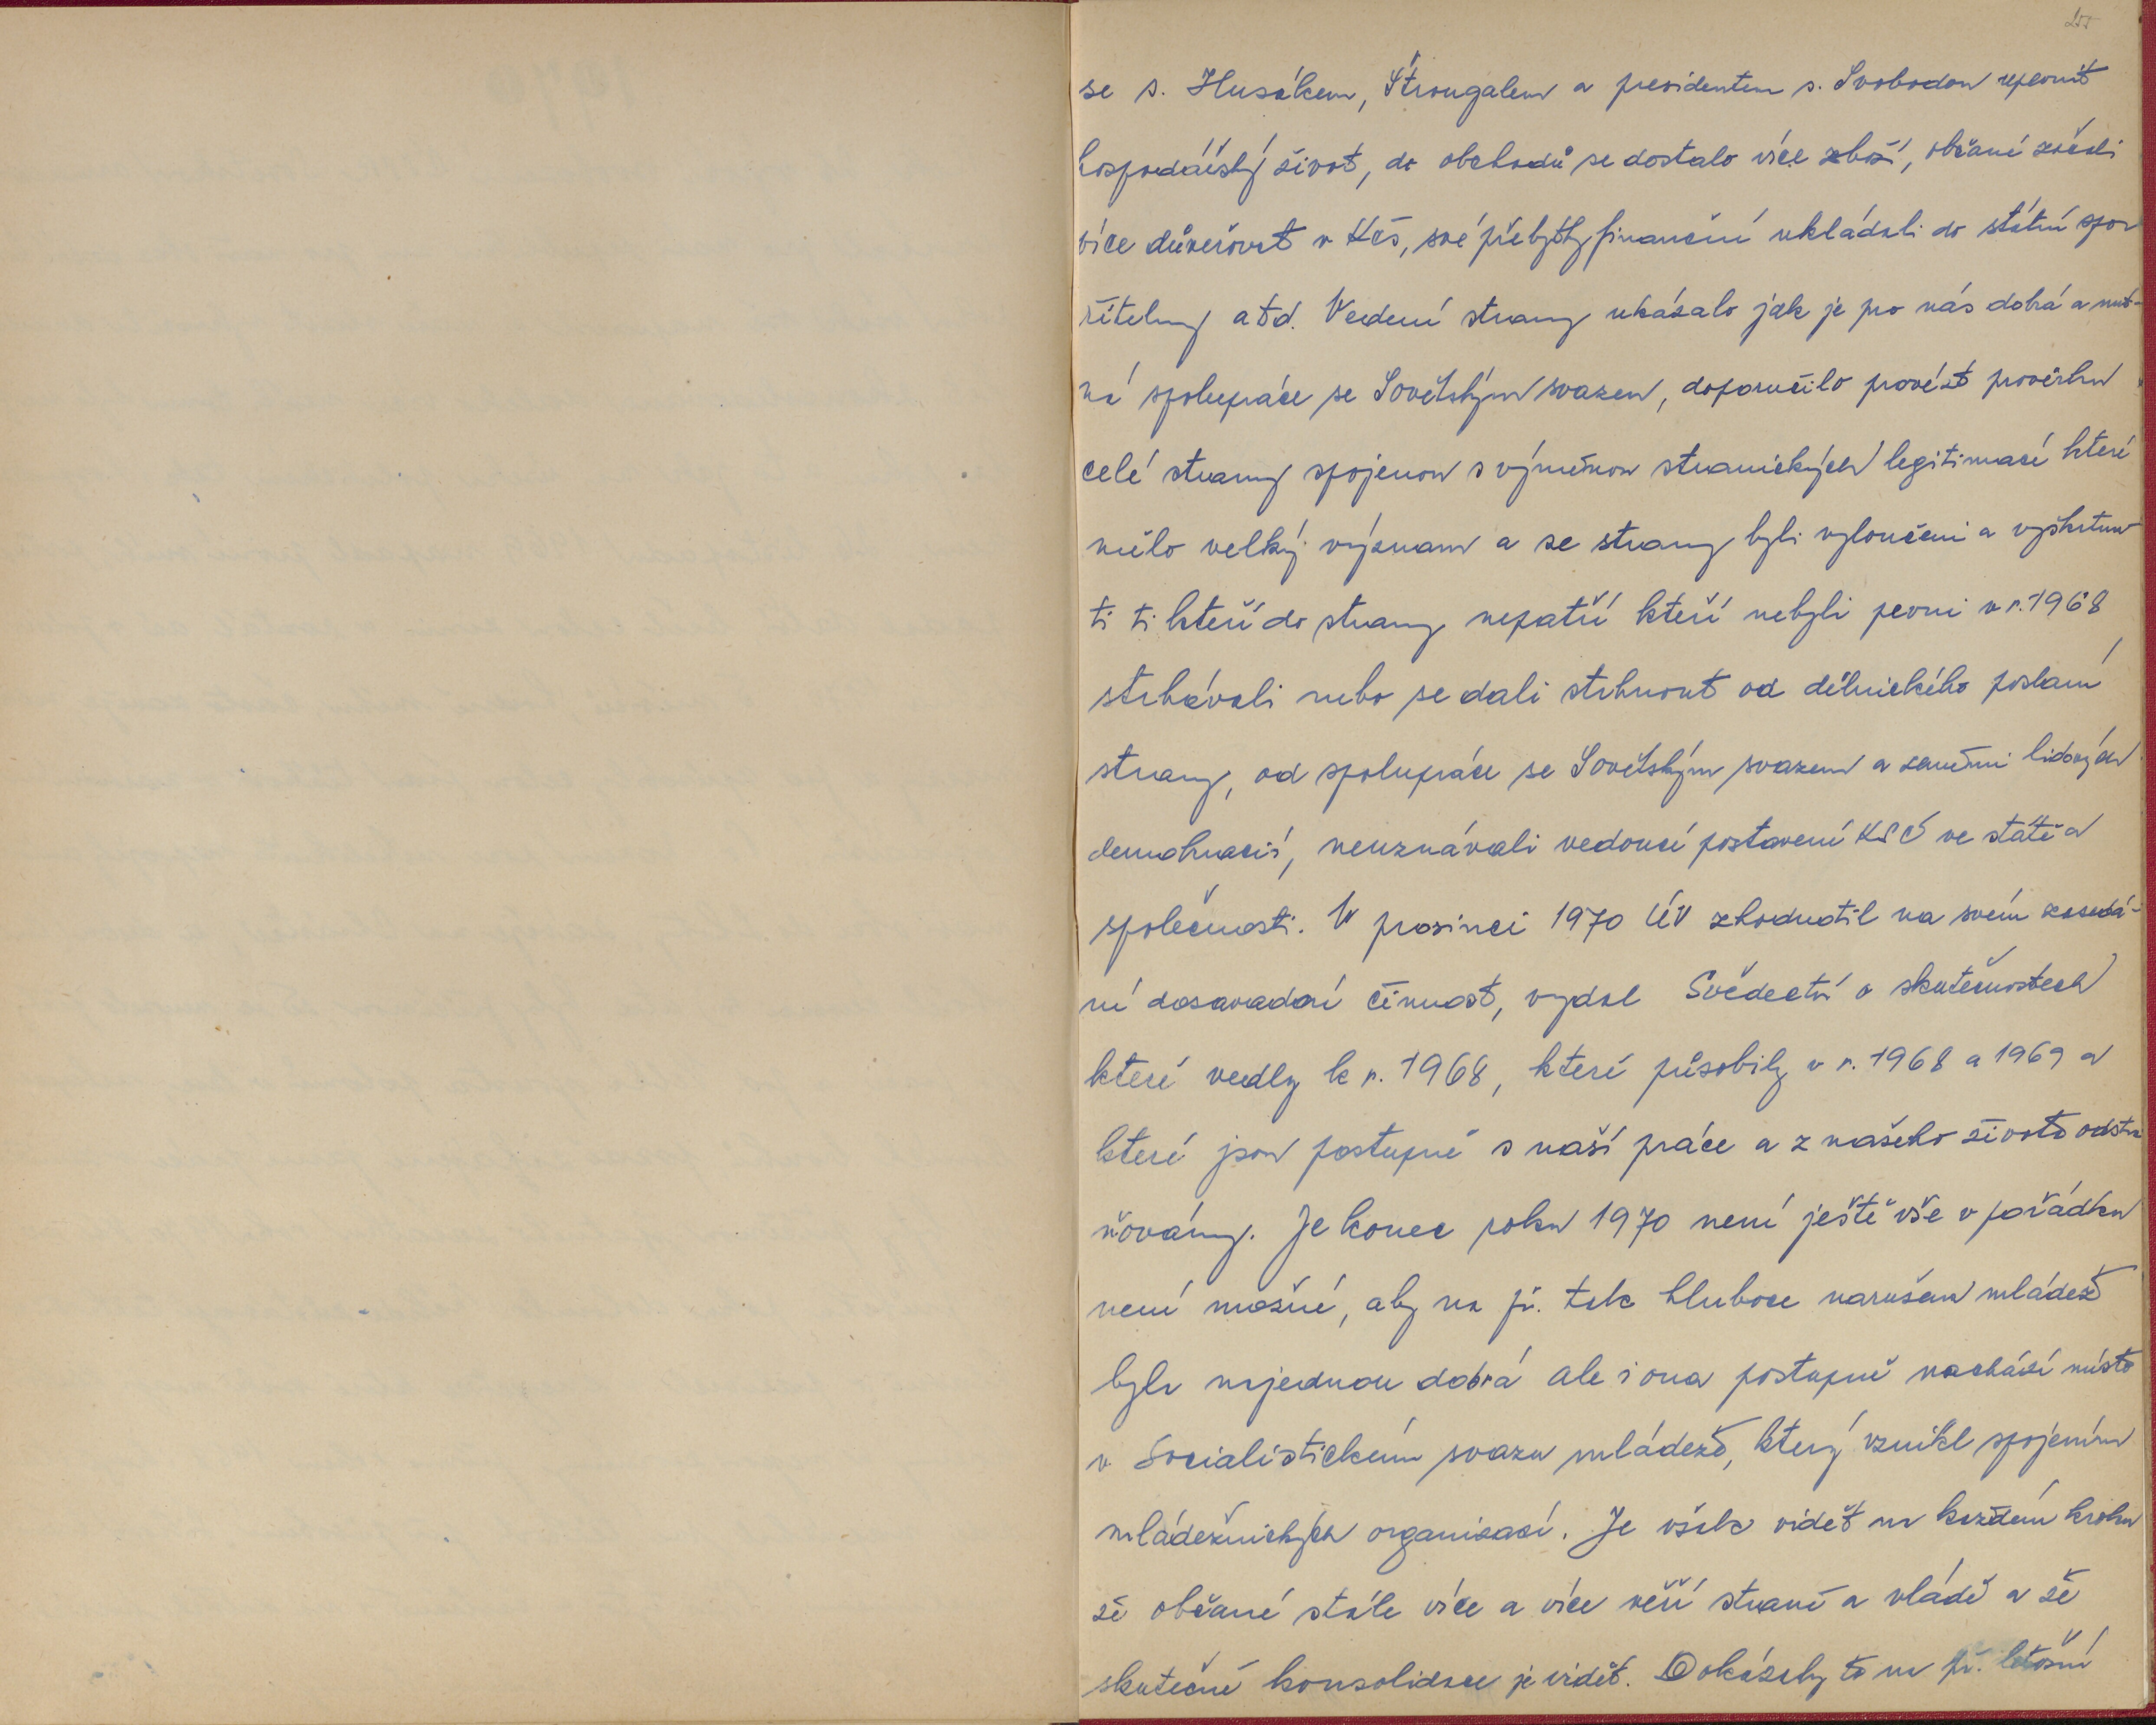 se s. Husákem, Štrougalem a presidentem s. Svobodou upevnit
hospodářský život, do obchodů se dostalo více zboží, občané začali
více důvěřovat v Kčs, své přebytky finanční vkládali do státní spo-
řitelny atd. Vedení strany ukázalo jak je pro nás dobrá a nut-
ná spolupráce se Sovětským svazem, doporučilo provézt prověrku
celé strany spojenou s výměnou stranických legitimací které
mělo velký význam a ze strany byli vyloučeni a vyškrtnu
ti ti kteří do strany nepatří kteří nebyli pevni v r. 1968
strhávali nebo se dali strhnout od dělnického poslání
strany, od spolupráce se Sovětským svazem a zeměmi lidových
demokracií, neuznávali vedoucí postavení KSČ ve státě a
společnosti. V prosinci 1970 ÚV zhodnotil na svém zasedá-
ní dosavadní činnost, vydal Svědectví o skutečnostech
které vedly k r. 1968, které působily v r. 1968 a 1969 a
které jsou postupně s naší práce a z našeho života odstra
ňovány. Je konec roku 1970 není ještě vše v pořádku
není možné, aby na př. tak hluboce narušena mládež
byla najednou dobrá ale i ona postupně nachází místo
v Socialistickém svazu mládeže, který vznikl spojením
mládežnických organisací. Je však vidět na každém kroku
že občané stále více a více věří straně a vládě a že
skutečně konsolidace je vidět. Dokázaly to na př. letošní